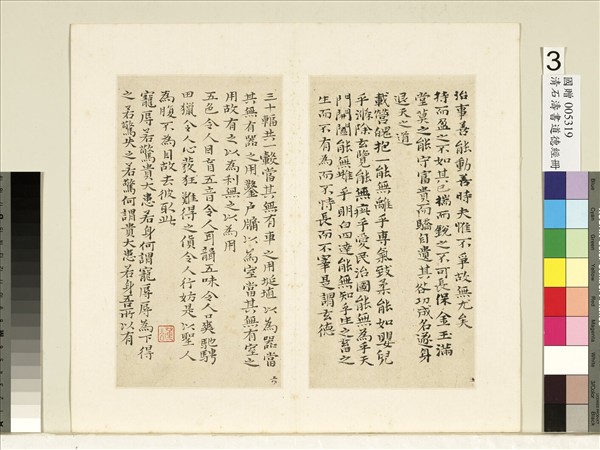 3
國贈 005319
清石濤書道德經冊
治事善能動善時夫惟不爭故無尤矣
持而盈之不如其已揣而銳之不可長保金玉滿
堂莫之能守富貴而驕自遺其咎功成名遂身
退天之道
載營魄抱一能無離乎專氣致柔能如嬰兒
乎滌除玄覽能無疵乎愛民治國能無為乎天
門開闔能無雌乎明白四達能無知乎生之畜之
生而不有為而不恃長而不宰是謂玄德
三十輻共一轂當其無有車之用埏埴以為器當
其無有器之用鑿戶牖以為室當其無有室之
用故有之以為利無之以為用
五色令人目盲五音令人耳聾五味令人口爽馳騁
田獵令人心發狂難得之貨令人行妨是以聖人
為腹不為目故去彼取此
寵辱若驚貴大患若身何謂寵辱辱為下得
之若驚失之若驚何謂貴大患若身吾所以有
六
Blue
Cyan
Green
Yellow
Red
Magenta
White
3/Color
Black